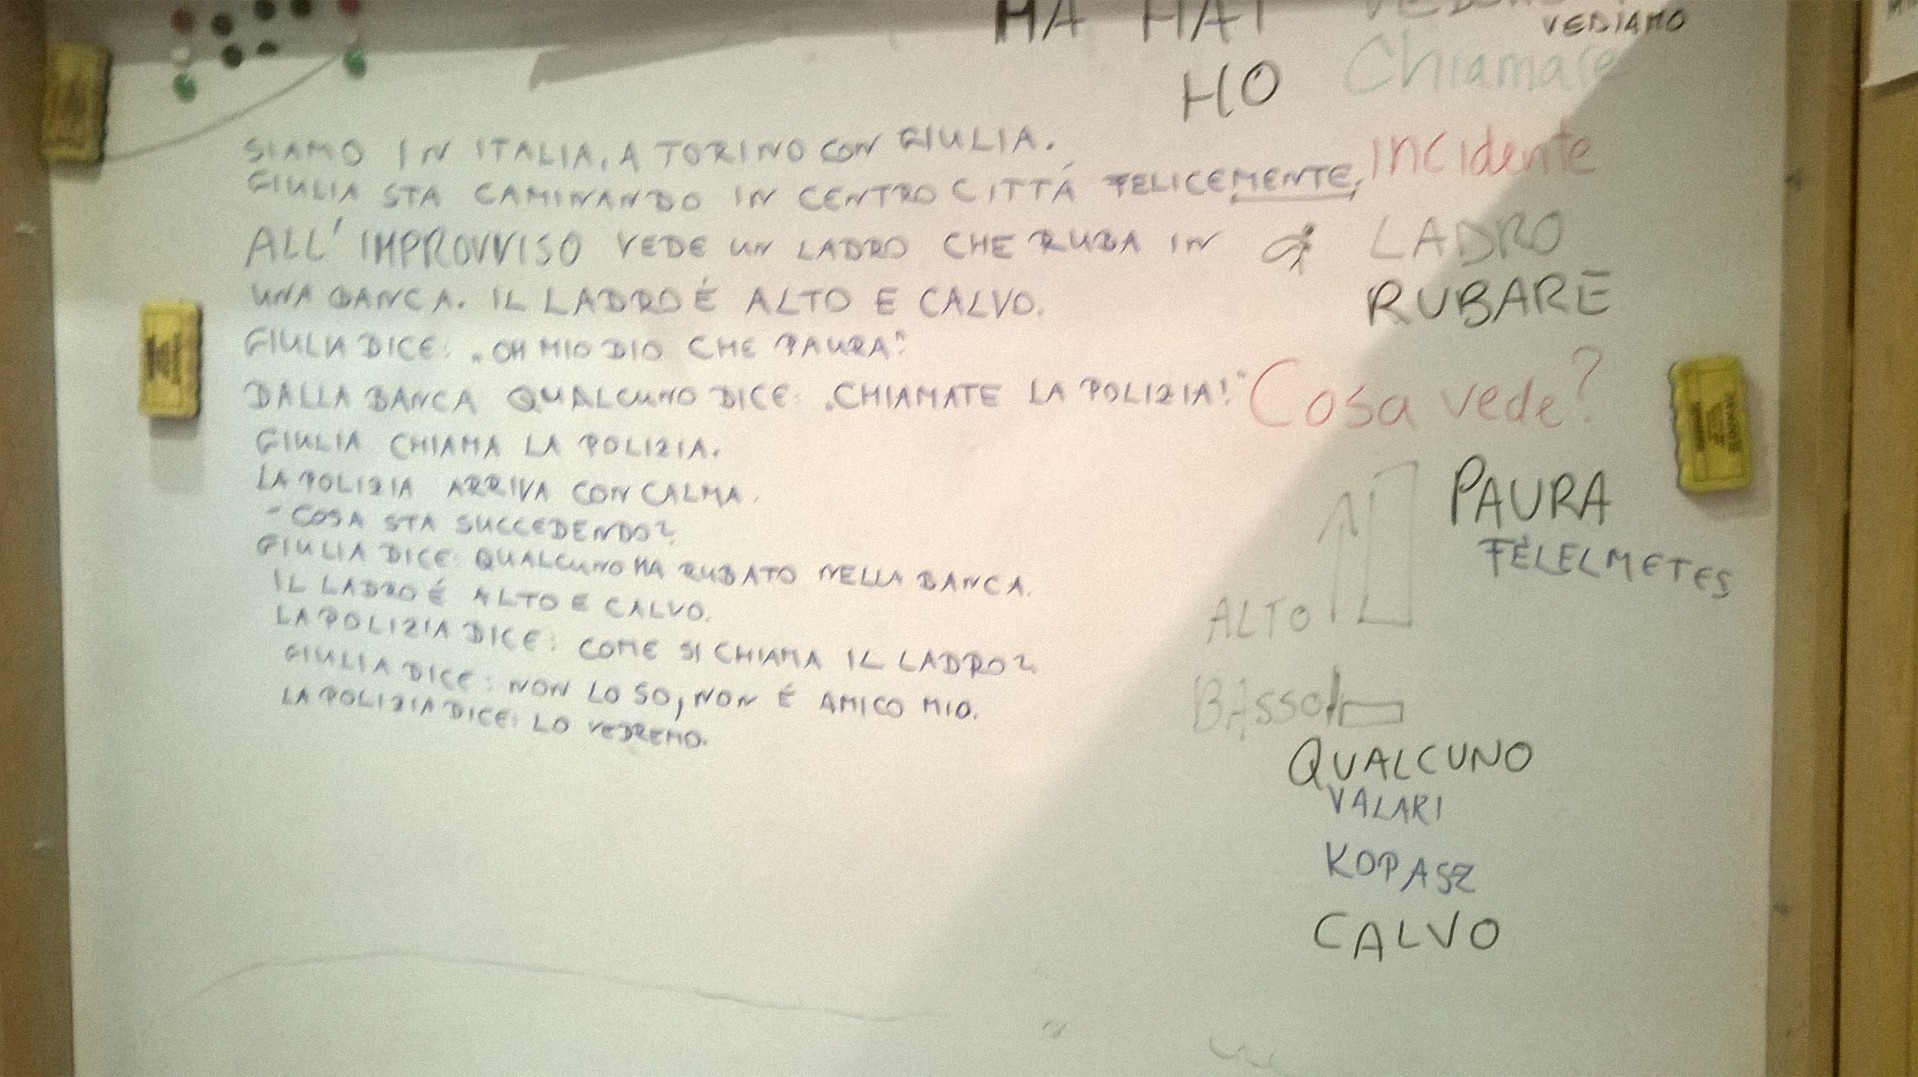 HA HAI
VEDIAMO
HO
Chiamare
SIAMO IN ITALIA, A TORINO CON GIULIA.
GIULIA STA CAMINANDO IN CENTRO CITTÁ FELICEMENTE,
ALL'IMPROVVISO VEDE UN LADRO CHE RUBA IN
UNA BANCA. IL LADRO É ALTO E CALVO.
GIULIA DICE: „OH MIO DIO CHE PAURA"
DALLA BANCA QUALCUNO DICE: „CHIAMATE LA POLIZIA!"
GIULIA CHIAMA LA POLIZIA.
LA POLIZIA ARRIVA CON CALMA.
- COSA STA SUCCEDENDO?
GIULIA DICE: QUALCUNO HA RUBATO NELLA BANCA.
IL LADRO É ALTO E CALVO.
LA POLIZIA DICE: COME SI CHIAMA IL LADRO?
GIULIA DICE: NON LO SO, NON É AMICO MIO.
LA POLIZIA DICE: LO VEDREMO.
incidente
LADRO
RUBARE
Cosa vede?
PAURA
FÉLELMETES
ALTO
BASSO
QUALCUNO
VALAKI
KOPASZ
CALVO